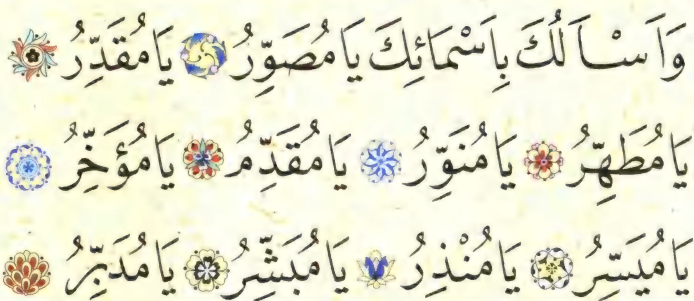 وَاَسْاَلُكَ بِاَسْمَائِكَ يَا مُصَوِّرُ يَا مُقَدِّرُ
يَا مُطَهِّرُ يَا مُنَوِّرُ يَا مُقَدِّمُ يَا مُؤَخِّرُ
يَا مُيَسِّرُ يَا مُنْذِرُ يَا مُبَشِّرُ يَا مُدَبِّرُ